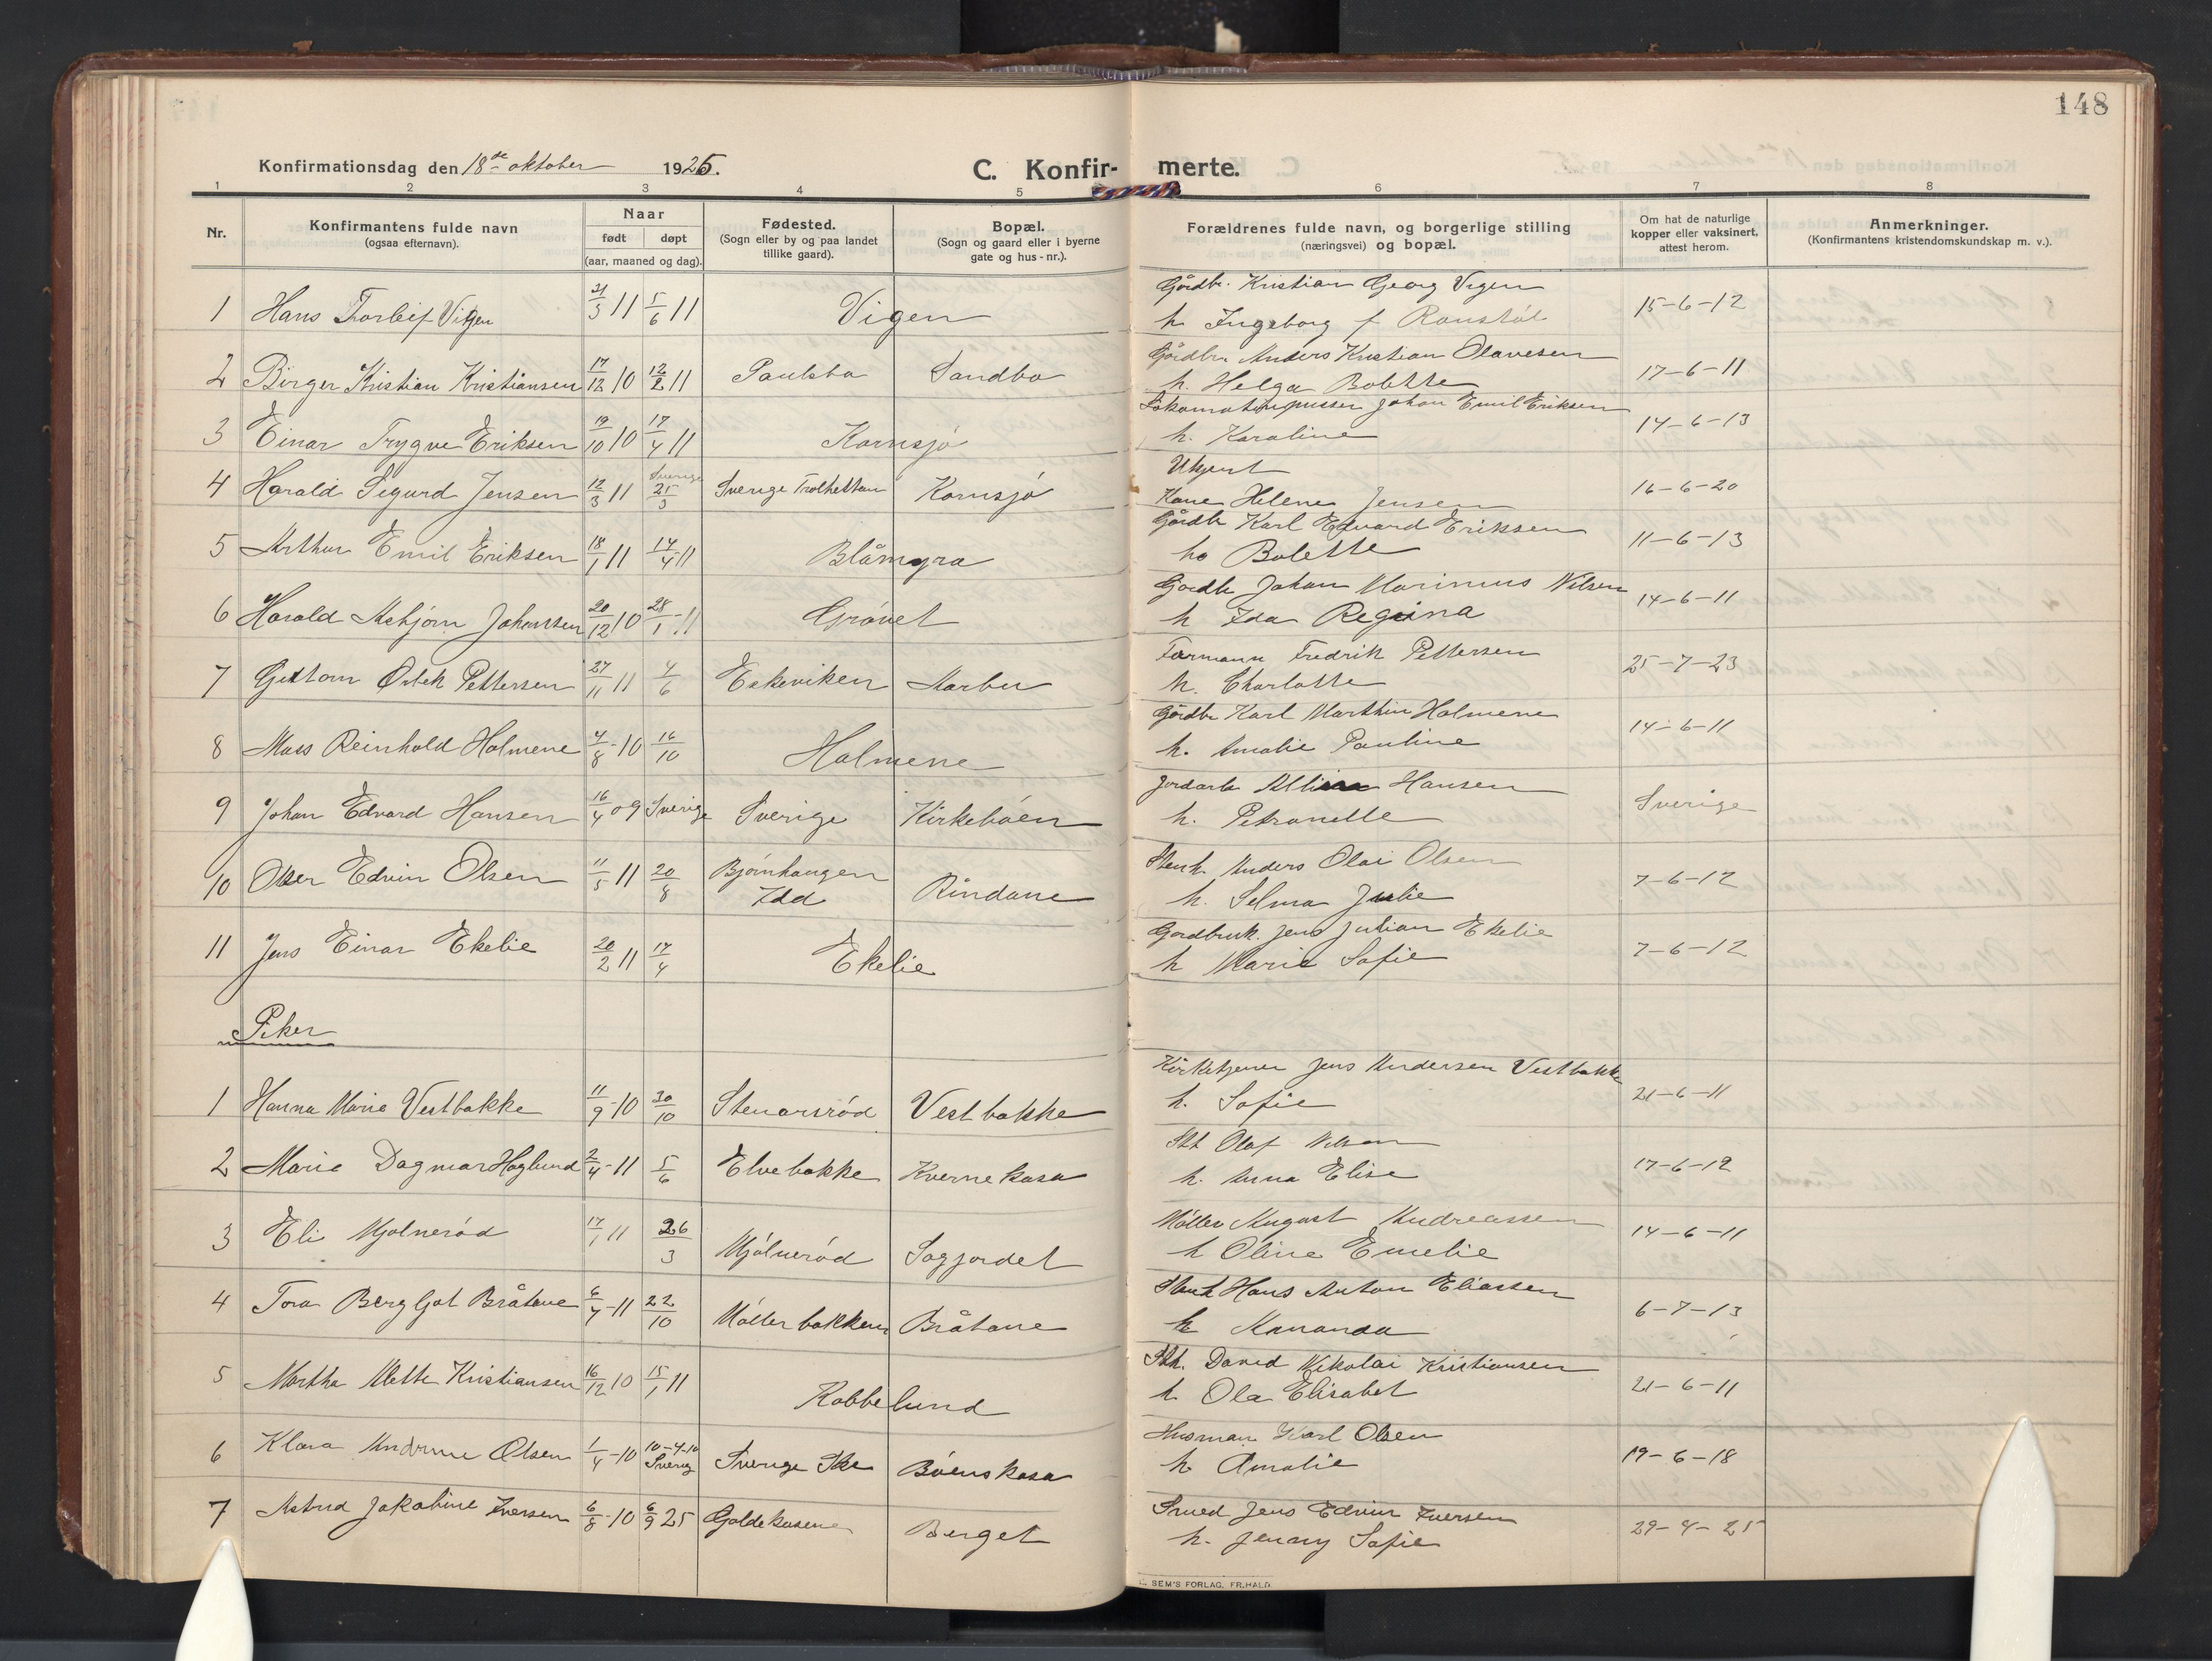 148
Konfirmationsdag den 18de oktober 1925.
C. Konfirmerte.
1 2 3 4 5 6 7 8
Nr.
Konfirmantens fulde navn
(ogsaa efternavn).
Naar
født døpt
(aar, maaned og dag).
Fødested.
(Sogn eller by og paa landet
tillike gaard).
Bopæl.
(Sogn og gaard eller i byerne
gate og hus-nr.).
Forældrenes fulde navn, og borgerlige stilling
(næringsvei) og bopæl.
Om hat de naturlige
kopper eller vaksinert,
attest herom.
Anmerkninger.
(Konfirmantens kristendomskundskap m. v.).
1 Hans Torleif Vigen 21/3 11 5/6 11 Vigen
Gårdbr. Kristian Georg Vigen
h. Ingeborg f 15-6-12
2 Birger Kristian Kristiansen 17/12 10 12/2 11 Paulsbo Sandbo
Gårdbr. Anders Kristian Olavesen
h. Helga Bolette 17-6-11
3 Einar Trygve Eriksen 19/10 10 17/4 11 Kornsjø
Lokomotivpusser Johan Emil Eriksen
h. Karoline 14-6-13
4 Harald Sigurd Jensen 12/3 11 Sverige 25/3 Sverige Trolhettan Kornsjø
Ukjent
Kone Helene Jensen 16-6-20
5 Arthur Emil Eriksen 18/1 11 14/4 11 Blåmyra
Gårdbr Karl Edvard Eriksen
h. Bolette 11-6-13
6 Harald Asbjørn Johansen 20/12 10 28/1-11 Grøvet
Gårdbr Johan Marinius Nilsen
h Ida Regina 14-6-11
7 Pettersen 27/11 11 4/6 Eskeviken Aarbu
Formann Fredrik Pettersen
h. Charlotte 25-7-23
8 Mass Reinhold Holmene 4/8-10 16/10 Holmene
Gårdbr Karl Marthin Holmene
h. Amalie Pauline 14-6-11
9 Johan Edvard Hansen 16/4 09 Sverige Sverige Kirkebøen
Jordarb Hansen
h. Petronelle Sverige
10 Edvin Olsen 11/5 11 20/8 Bjørnhaugen Idd Rindane
Stenh. Anders Olai Olsen
h. Selma Julie 7-6-12
11 Jens Einar Ekelie 20/2 11 17/4 Ekelie
Gårdbruk. Jens Julian Ekelie
h Marie Sofie 7-6-12
Piker
1 Hanna Marie Vestbakke 11/9-10 30/10 Stenarsrød Vestbakke
Kirketjener Jens Andersen Vestbakke
h. Sofie 21-6-11
2 Marie Dagmar Haglund 2/4-11 5/6 Elvebakke Kvernekasa
Sth Olaf Nilsen
h. Anna Elise 17-6-12
3 Eli Mjølnerød 17/1 11 26/3 Mjølnerød Sagjordet
Møller August Andreassen
h Oline Emelie 14-6-11
4 Tora Bergljot Bråtane 6/7-11 22/10 Møllerbakken Bråtane
Stenh Hans Anton Eliassen
h 6-7-13
5 Martha Mette Kristiansen 16/12 10 15/1 11 Kobbelund
Sth. David Nikolai Kristiansen
h. Ola Elisabet 21-6-11
6 Klara Olsen 1/4-10 10-4-10 Sverig Sverige Ske Bøenskasa
Husman Karl Olsen
h. Amalie 19-6-18
7 Astrid Jakobine Iversen 6/8-10 6/9 25 Goldekasene Berget
Smed Jens Edvin Iversen
h. Jenny Sofie 29-4-25
SEM'S FORLAG, FR.HALD.